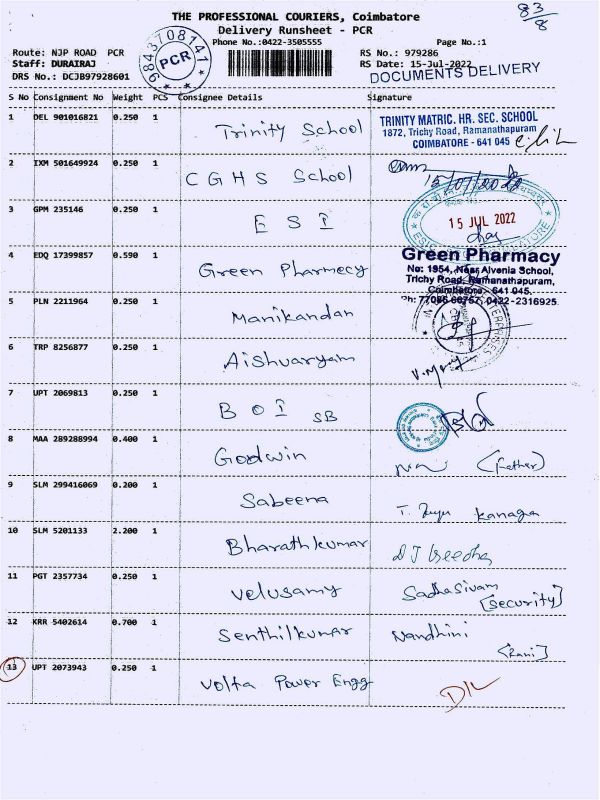 83/8
THE PROFESSIONAL COURIERS, Coimbatore
Delivery Runsheet - PCR
Phone No.:0422-3505555
Page No.:1
Route: NJP ROAD PCR
Staff: DURAIRAJ
DRS No.: DCJB97928601
9843708141
PCR
RS No.: 979286
RS Date: 15-Jul-2022
DOCUMENTS DELIVERY
S No Consignment No Weight PCS Consignee Details Signature
1 DEL 901016821 0.250 1 Trinity School
TRINITY MATRIC. HR. SEC. SCHOOL
1872, Trichy Road, Ramanathapuram
COIMBATORE - 641 045
2 IXM 501649924 0.250 1 CGHS School
15/07/2022
3 GPM 235146 0.250 1 ESI
15 JUL 2022
4 EDQ 17399857 0.590 1 Green Pharmecy
Green Pharmacy
No: 1954, Near Alvenia School,
Trichy Road, Ramanathapuram,
Coimbatore - 641 045.
Ph: 77086 66757, 0422-2316925
5 PLN 2211964 0.250 1 Manikandan
6 TRP 8256877 0.250 1 Aishvaryam
7 UPT 2069813 0.250 1 BOI SB
8 MAA 289288994 0.400 1 Goodwin (Father)
9 SLM 299416069 0.200 1 Sabeena T. Kanaga
10 SLM 5201133 2.200 1 Bharathkumar DJ Geedha
11 PGT 2357734 0.250 1 Velusamy Sadhasivam
[Security]
12 KRR 5402614 0.700 1 Senthilkumar Nandhini
[Rani]
13 UPT 2073943 0.250 1 Volta Power Engg D/L